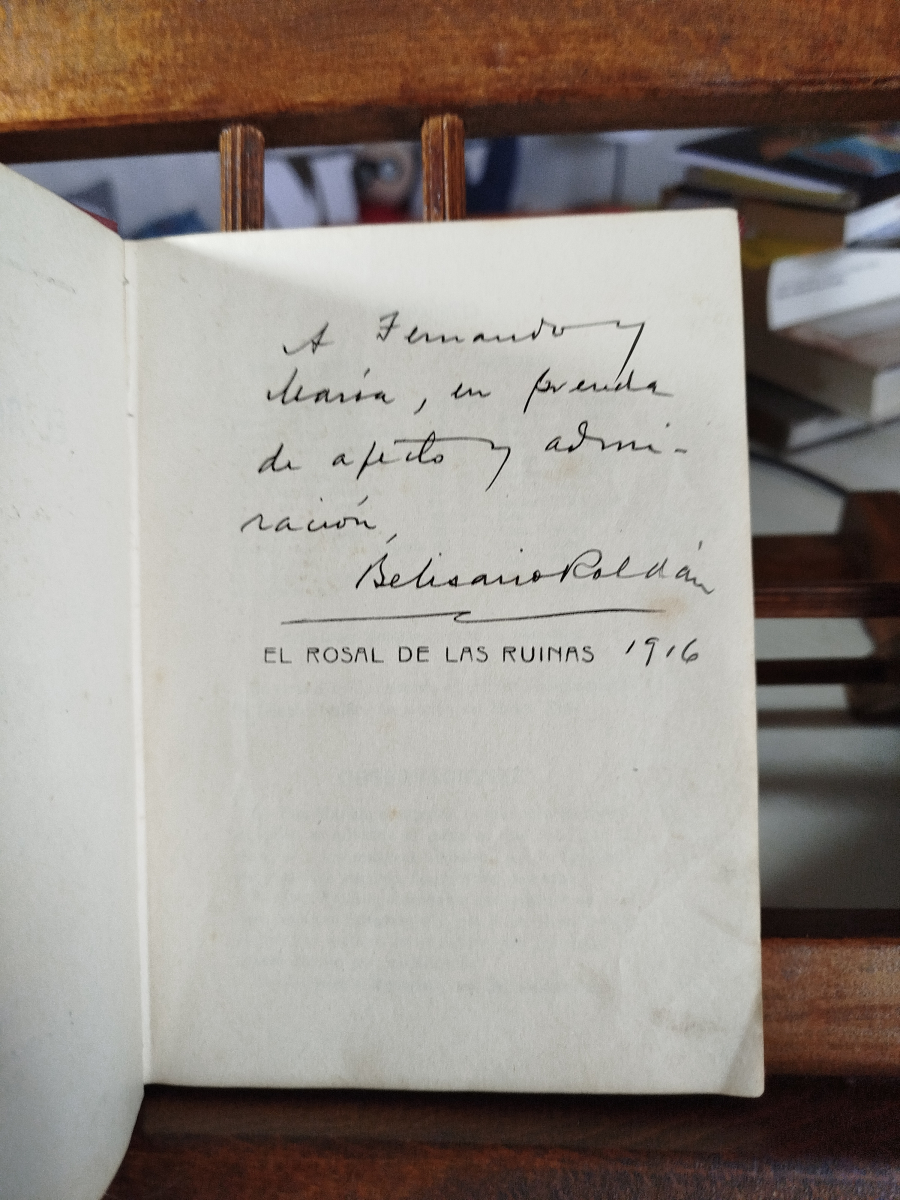 A Fernando y
María, en prenda
de afecto y admi-
ración,
Belisario Roldán
EL ROSAL DE LAS RUINAS 1916